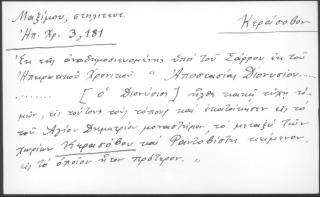 Μαξίμου, στηλιτευτ.
Κεράσοβον
Ηπ. Χρ. 3, 181
Ἐκ τῆς ἀναδημοσιευομένης ὑπὸ τοῦ Σάρρου ἐκ τοῦ
Ἠπειρωτικοῦ Χρονικοῦ "Ἀποστασίας Διονυσίου......
...... [ὁ Διονύσιος] ἦλθε κακῇ τύχῃ
μῶν, εἰς τούτους τοὺς τόπους καὶ ἐκατοίκησεν εἰς τὸ
τοῦ Ἁγίου Δημητρίου μοναστήριον, τὸ μεταξὺ τῶν
χωρίων Κερασόβου καὶ Ραντοβίστι κείμενον,
εἰς τὸ ὁποῖον ἦτον πρότερον."